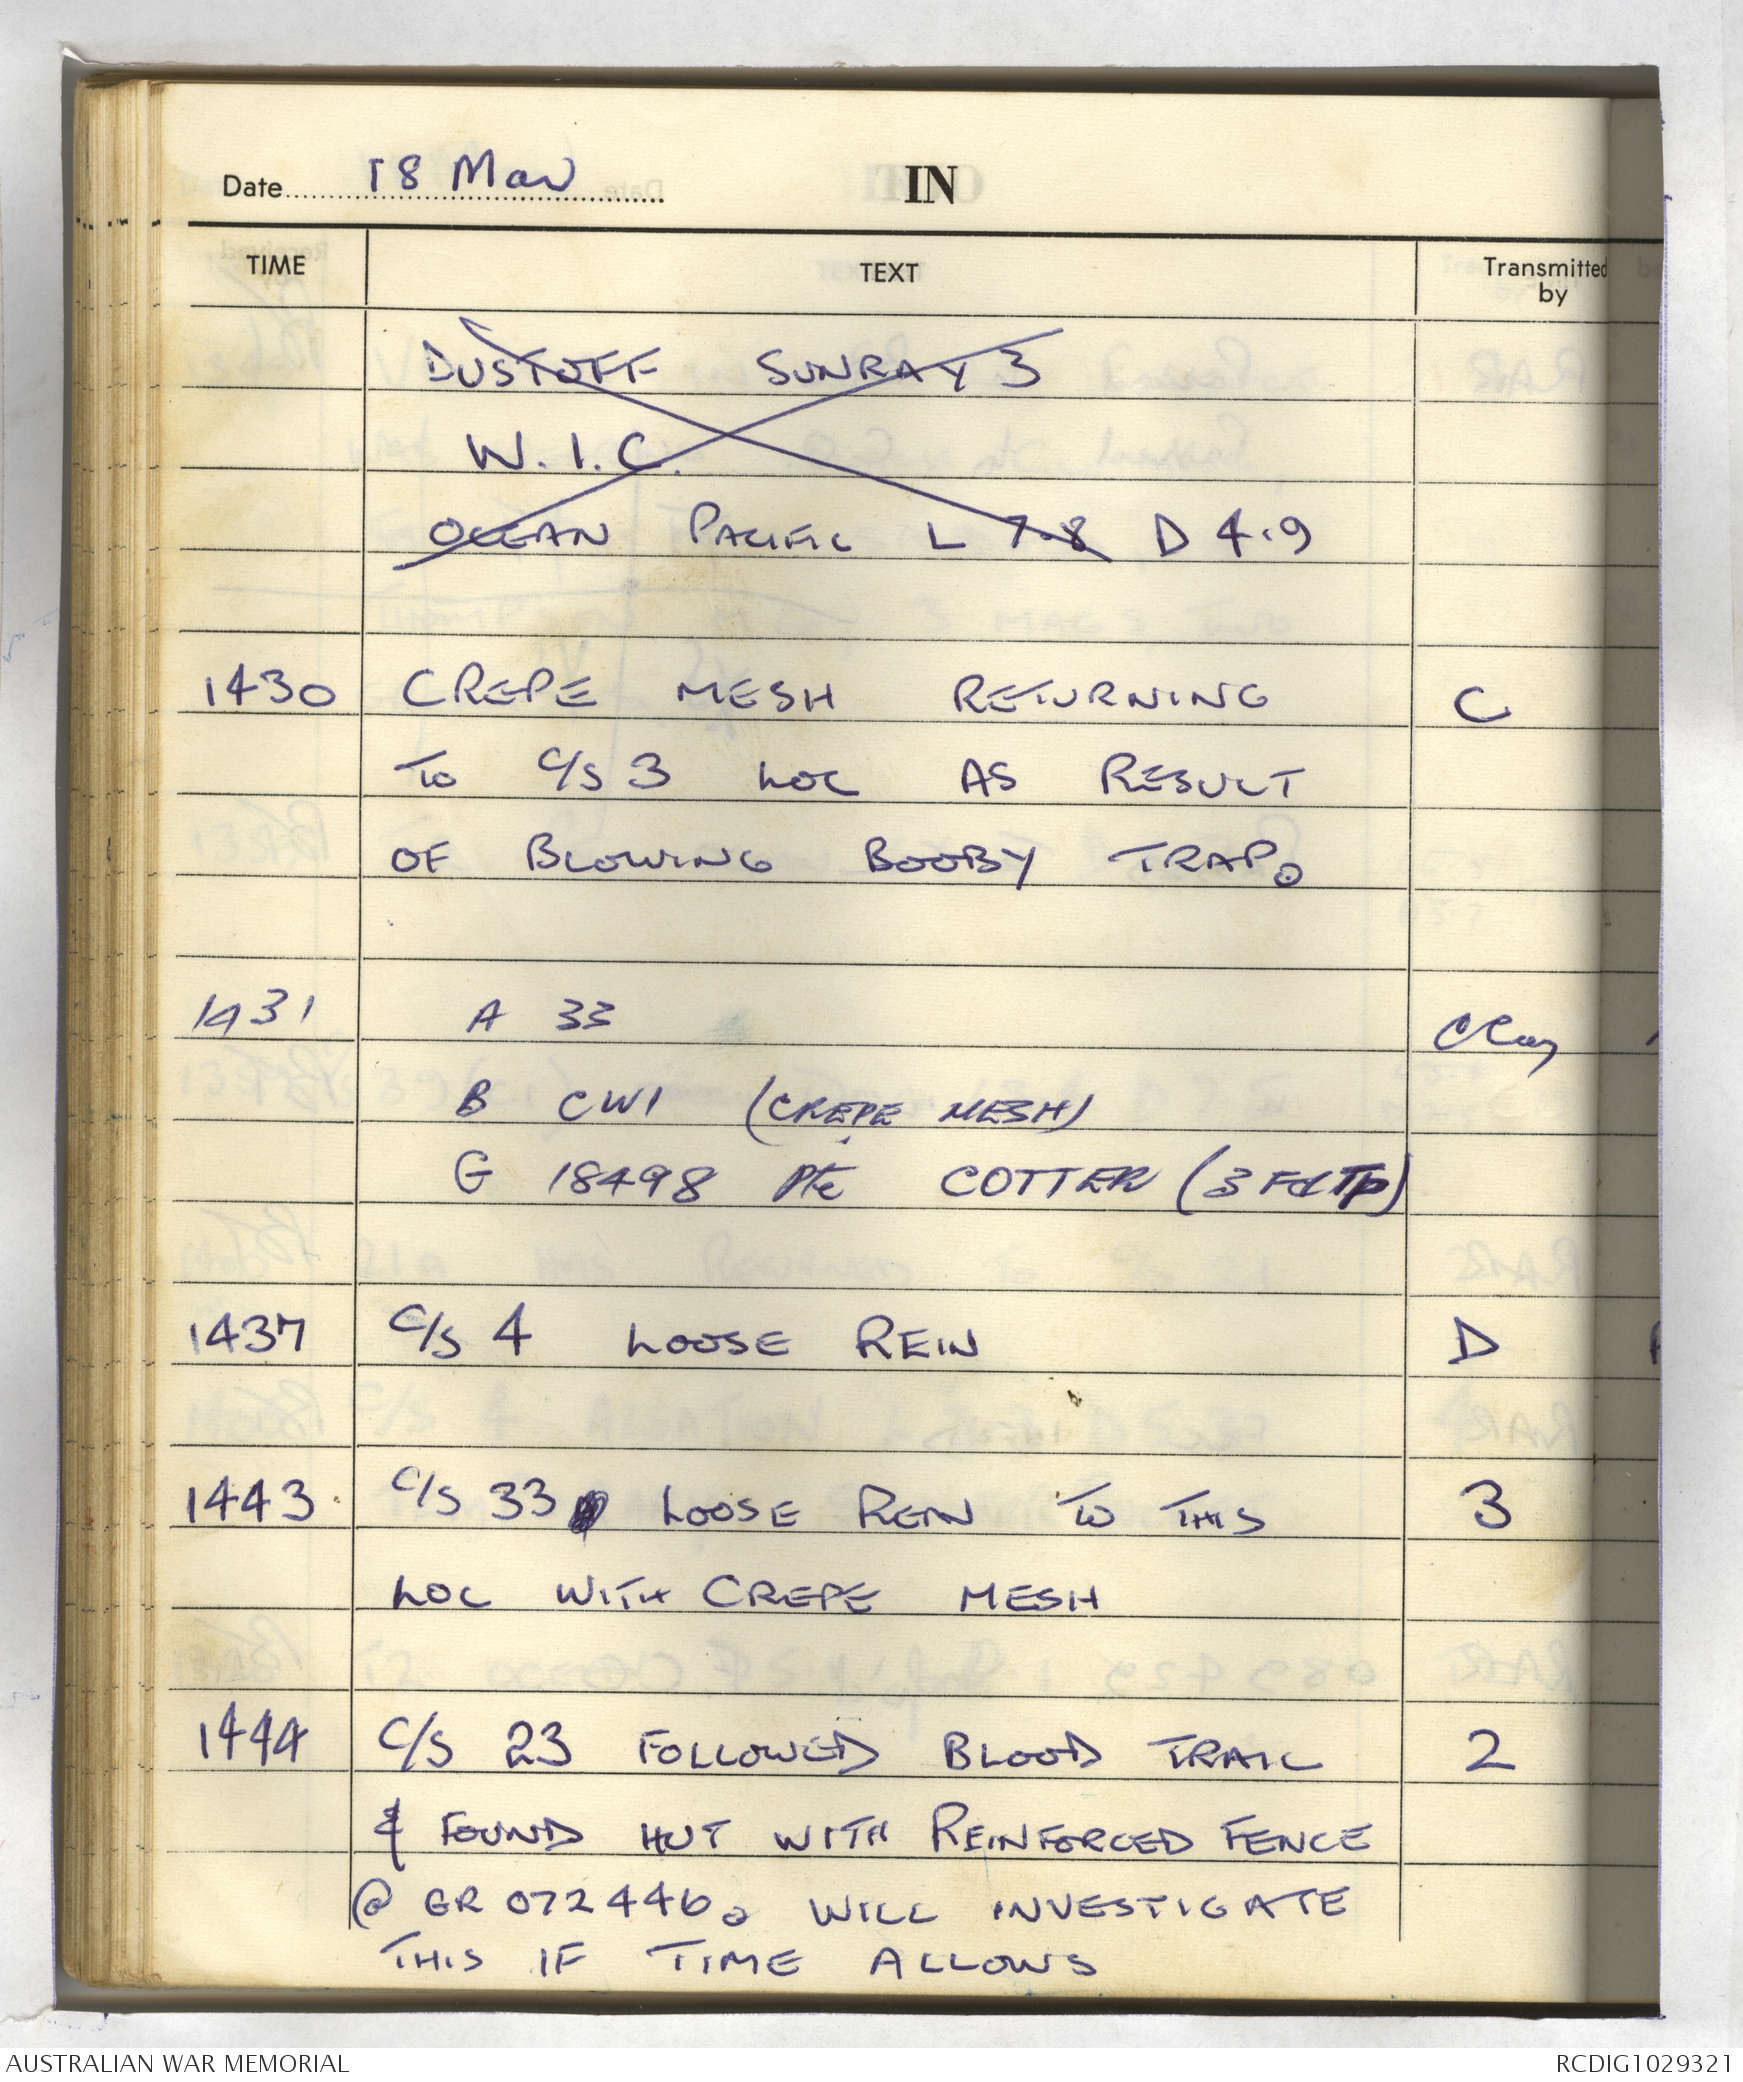 Date 18 Mar IN
TIME TEXT Transmitted by
DUSTOFF SUNRAY 3
W.I.C.
OCEAN PACIFIC L 7.8 D 4.9
1430 CREPE MESH RETURNING C
TO C/S 3 LOC AS RESULT
OF BLOWING BOOBY TRAP.
1431 A 33
B CWI (CREPE MESH)
G 18498 Pte COTTER (3 Fd Tp)
1437 C/S 4 LOOSE REIN D
1443 C/S 33 LOOSE REIN TO THIS 3
LOC WITH CREPE MESH
1444 C/S 23 FOLLOWED BLOOD TRAIL 2
& FOUND HUT WITH REINFORCED FENCE
@ GR 072446. WILL INVESTIGATE
THIS IF TIME ALLOWS
AUSTRALIAN WAR MEMORIAL RCDIG1029321